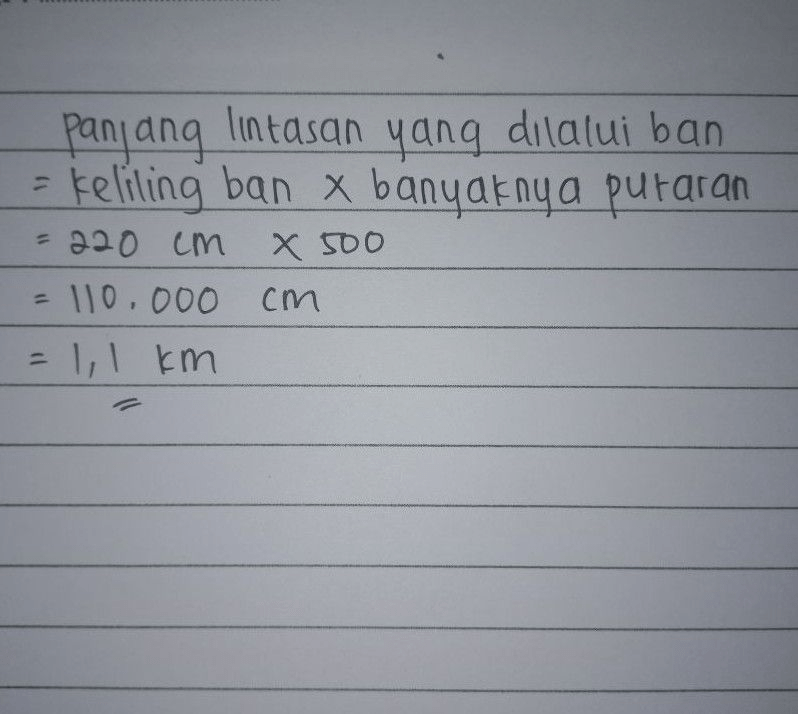 Panjang lintasan yang dilalui ban
= keliling ban x banyaknya putaran
= 220 cm x 500
= 110.000 cm
= 1,1 km
=